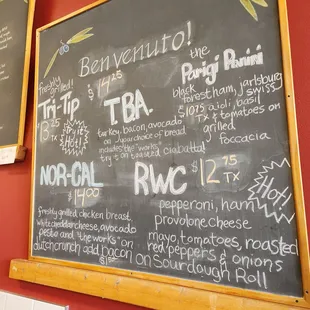 Benvenuto!
freshly
grilled!
Tri-Tip
$13 25 TX
Try it
HOT!
$14 25
T.B.A.
turkey, bacon, avocado
on your choice of bread
includes the "works"
try it on toasted ciabatta!
the
Parigi Panini
black
forest ham, jarlsburg
swiss
$10 75 TX
aioli, basil
& tomatoes on
grilled
foccacia
NOR-CAL
$14 00
freshly grilled chicken breast,
white cheddar cheese, avocado
pesto and "the works" on
dutchcrunch add bacon
$1.50
RWC
$12.75
TX
Hot!
pepperoni, ham
provolone cheese
mayo, tomatoes, roasted
red peppers & onions
on Sourdough Roll